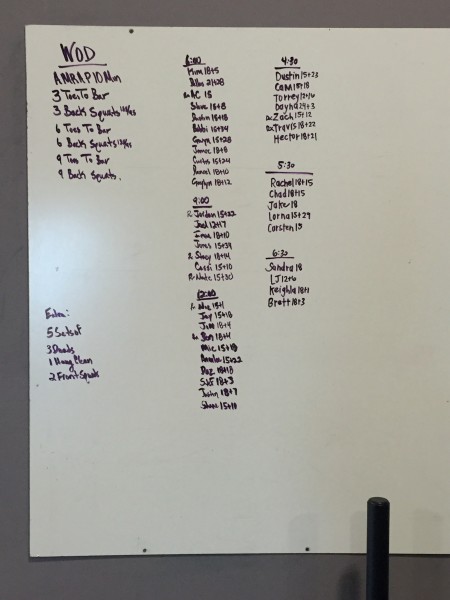 WOD
AMRAP 10 Min
3 Toes To Bar
3 Back Squats
6 Toes To Bar
6 Back Squats
9 Toes To Bar
9 Back Squats
Extra:
5 Sets of
3 Deads
1 Hang Clean
2 Front Squats
6:00
Kim 18+5
21+28
AC 15
Steve 15+8
Dustin 15+18
Bobbi 15+34
15+28
18+8
Curtis 15+24
18+10
18+12
9:00
Jordan 15+22
12+17
18+10
Jones 15+34
Stacy 18+14
Cassi 15+10
Nate 15+30
12:00
15+1
Jay 15+18
Jim 18+4
18+4
Mic 15+18
15+22
Daz 18+18
18+3
Justin 18+7
Shane 15+11
4:30
Dustin 15+23
Cami 15+18
Torrey 12+16
Dayna 24+3
Zach 15+12
Travis 18+22
Hector 18+21
5:30
Rachel 18+15
Chad 18+15
Jake 18
Lorna 15+29
Carsten 15
6:30
Sandra 18
LJ 12+6
Keighla 18+1
Brett 18+3